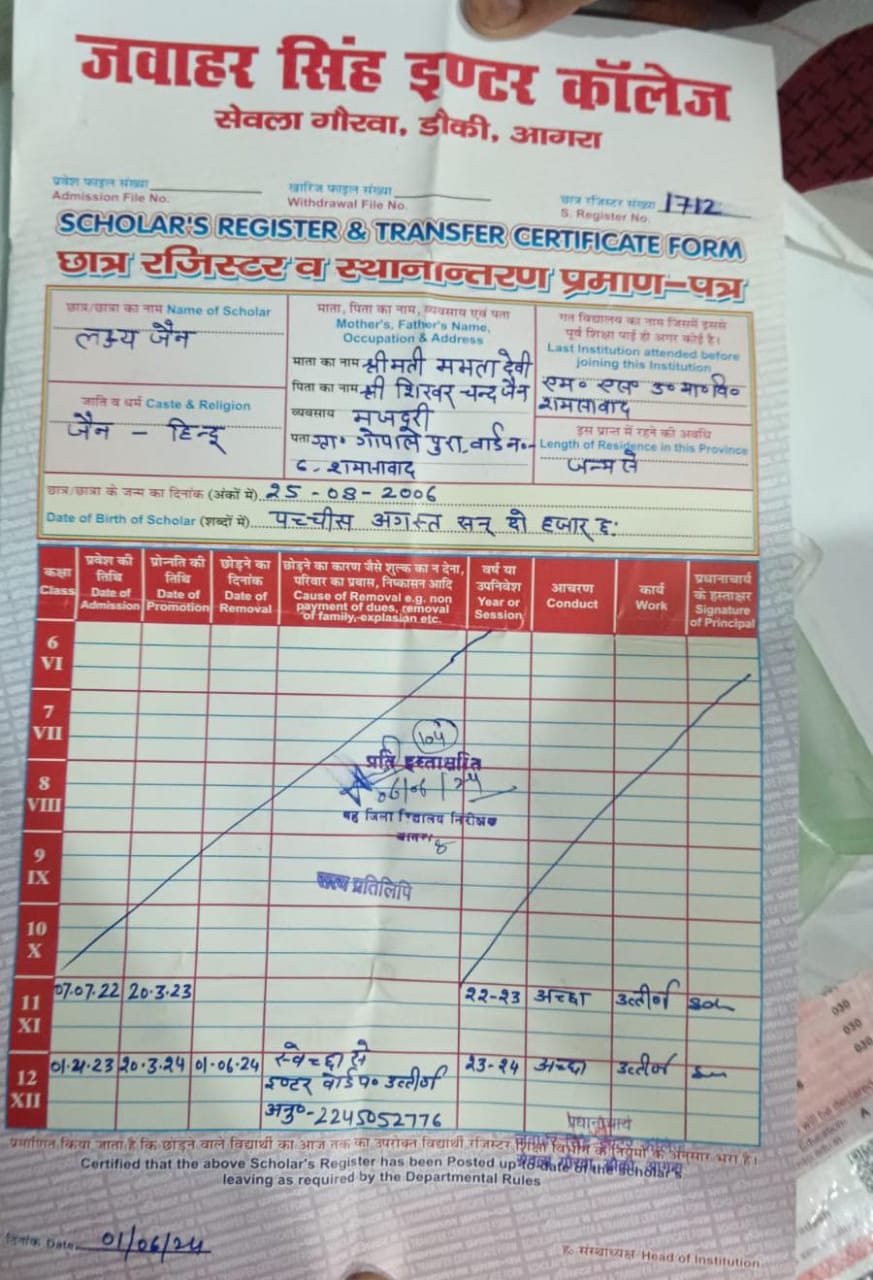 जवाहर सिंह इण्टर कॉलेज
सेवला गौरवा, डौकी, आगरा
प्रवेश फाइल संख्या
Admission File No.
खारिज फाइल संख्या
Withdrawal File No.
छात्र रजिस्टर संख्या 1712
S. Register No.
SCHOLAR'S REGISTER & TRANSFER CERTIFICATE FORM
छात्र रजिस्टर व स्थानान्तरण प्रमाण-पत्र
छात्र/छात्रा का नाम Name of Scholar
लक्ष्य जैन
जाति व धर्म Caste & Religion
जैन - हिन्दू
माता, पिता का नाम, व्यवसाय एवं पता
Mother's, Father's Name,
Occupation & Address
माता का नाम श्रीमती ममता देवी
पिता का नाम श्री शिखर चन्द जैन
व्यवसाय मजदूरी
पता गोपाल पुरा, वार्ड न०-
6, शमसाबाद
गत विद्यालय का नाम जिसमें इससे
पूर्व शिक्षा पाई हो अगर कोई है।
Last Institution attended before
joining this Institution
एम० एल० उ० मा० वि०
शमसाबाद
इस प्रान्त में रहने की अवधि
Length of Residence in this Province
जन्म से
छात्र/छात्रा के जन्म का दिनांक (अंकों में) 25-08-2006
Date of Birth of Scholar (शब्दों में) पच्चीस अगस्त सन् दो हजार छ:
कक्षा
Class
प्रवेश की
तिथि
Date of
Admission
प्रोन्नति की
तिथि
Date of
Promotion
छोड़ने का
दिनांक
Date of
Removal
छोड़ने का कारण जैसे शुल्क का न देना,
परिवार का प्रवास, निष्कासन आदि
Cause of Removal e.g. non
payment of dues, removal
of family, explasion etc.
वर्ष या
उपनिवेश
Year or
Session
आचरण
Conduct
कार्य
Work
प्रधानाचार्य
के हस्ताक्षर
Signature
of Principal
6
VI
7
VII
8
VIII
9
IX
10
X
104
प्रति हस्ताक्षरित
06/06/24
सह जिला विद्यालय निरीक्षक
सत्य प्रतिलिपि
11 07.07.22 20.3.23 22-23 अच्छा उत्तीर्ण
XI
12 01.4.23 20.3.24 01.06.24 स्वेच्छा से 23-24 अच्छा उत्तीर्ण
XII
इण्टर बोर्ड प० उत्तीर्ण
अनु०-2245052776
प्रधानाचार्य
जवाहर सिंह इण्टर कॉलेज
सेवला गौरवा, डौकी, आगरा
प्रमाणित किया जाता है कि छोड़ने वाले विद्यार्थी का आज तक का उपरोक्त विद्यार्थी रजिस्टर शिक्षा विभाग के नियमों के अनुसार भरा है।
Certified that the above Scholar's Register has been Posted up-to-date of the scholar's
leaving as required by the Departmental Rules
दिनांक Date 01/06/24
ह० संस्थाध्यक्ष Head of Institution
030
030
030